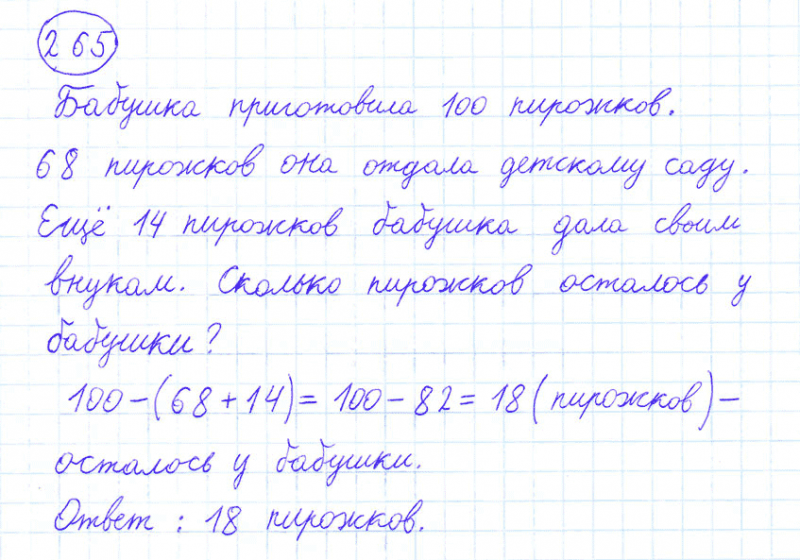 265
Бабушка приготовила 100 пирожков.
68 пирожков она отдала детскому саду.
Ещё 14 пирожков бабушка дала своим
внукам. Сколько пирожков осталось у
бабушки?
100-(68+14)= 100-82= 18(пирожков)-
осталось у бабушки.
Ответ : 18 пирожков.